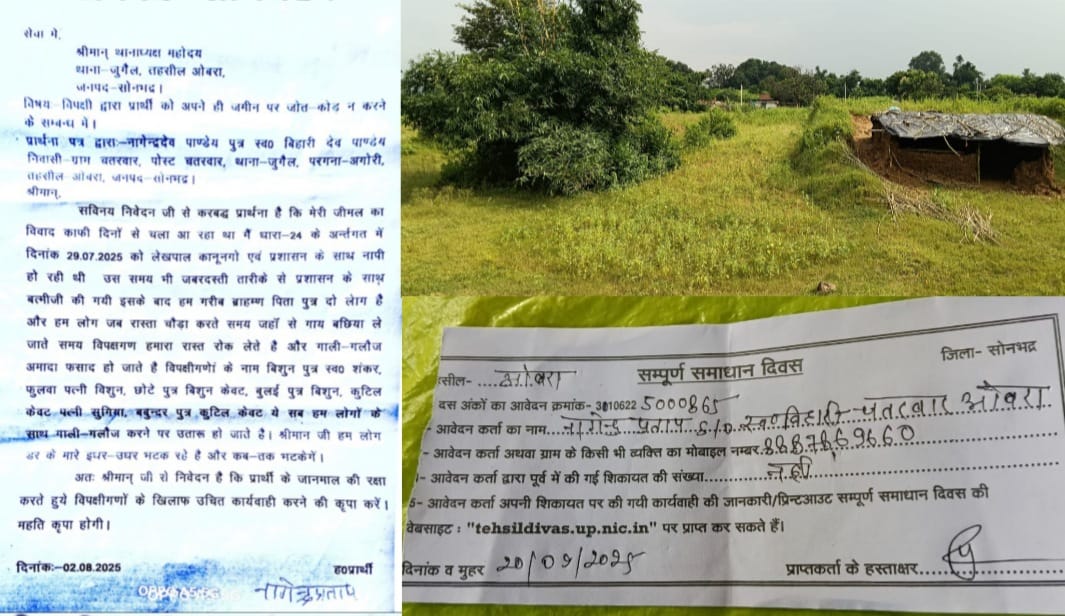 सेवा में,
श्रीमान् थानाध्यक्ष महोदय
थाना-जुगैल, तहसील ओबरा,
जनपद-सोनभद्र।
विषय:-विपक्षी द्वारा प्रार्थी को अपने ही जमीन पर जोत-कोड न करने
के सम्बन्ध में।
प्रार्थना पत्र द्वारा:-नागेन्द्रदेव पाण्डेय पुत्र स्व0 बिहारी देव पाण्डेय
निवासी-ग्राम चतरवार, पोस्ट चतरवार, थाना-जुगैल, परगना-अगोरी,
तहसील ओबरा, जनपद-सोनभद्र।
श्रीमान्,
सविनय निवेदन जी से करबद्ध प्रार्थना है कि मेरी जीमल का
विवाद काफी दिनों से चला आ रहा था मैं धारा-24 के अर्न्तगत में
दिनांक 29.07.2025 को लेखपाल कानूनगो एवं प्रशासन के साथ नापी
हो रही थी उस समय भी जबरदस्ती तारीके से प्रशासन के साथ
बत्मीजी की गयी इसके बाद हम गरीब ब्राहम्ण पिता पुत्र दो लेाग है
और हम लोग जब रास्ता चौड़ा करते समय जहाँ से गाय बछिया ले
जाते समय विपक्षगण हमारा रास्त रोक लेते है और गाली-गलौज
अमादा फसाद हो जाते है विपक्षीगणों के नाम बिशुन पुत्र स्व0 शंकर,
फुलवा पत्नी विशुन, छोटे पुत्र बिशुन केवट, बुलई पुत्र बिशुन, कुटिल
केवट पत्नी सुगिया, बबुन्दर पुत्र कुटिल केवट ये सब हम लोगों के
साथ गाली-गलौज करने पर उतारू हो जाते है। श्रीमान जी हम लोग
डर के मारे इधर-उधर भटक रहे है और कब-तक भटकेगें।
अतः श्रीमान् जी से निवेदन है कि प्रार्थी के जानमाल की रक्षा
करते हुये विपक्षीगणों के खिलाफ उचित कार्यवाही करने की कृपा करें।
महति कृपा होगी।
दिनांक:-02.08.2025 ह0प्रार्थी
नागेन्द्र प्रताप
जिला- सोनभद्र
सील-....ओबरा
सम्पूर्ण समाधान दिवस
दस अंकों का आवेदन क्रमांक- 3010622 5000865
आवेदन कर्ता का नाम...नागेन्द्र प्रताप S/o स्व० बिहारी-चतरवार ओबरा
- आवेदन कर्ता अथवा ग्राम के किसी भी व्यक्ति का मोबाइल नम्बर.8887869660
- आवेदन कर्ता द्वारा पूर्व में की गई शिकायत की संख्या......नही
5- आवेदन कर्ता अपनी शिकायत पर की गयी कार्यवाही की जानकारी/प्रिन्टआउट सम्पूर्ण समाधान दिवस की
वेबसाइट : "tehsildivas.up.nic.in" पर प्राप्त कर सकते हैं।
दिनांक व मुहर 20/09/2025
प्राप्तकर्ता के हस्ताक्षर